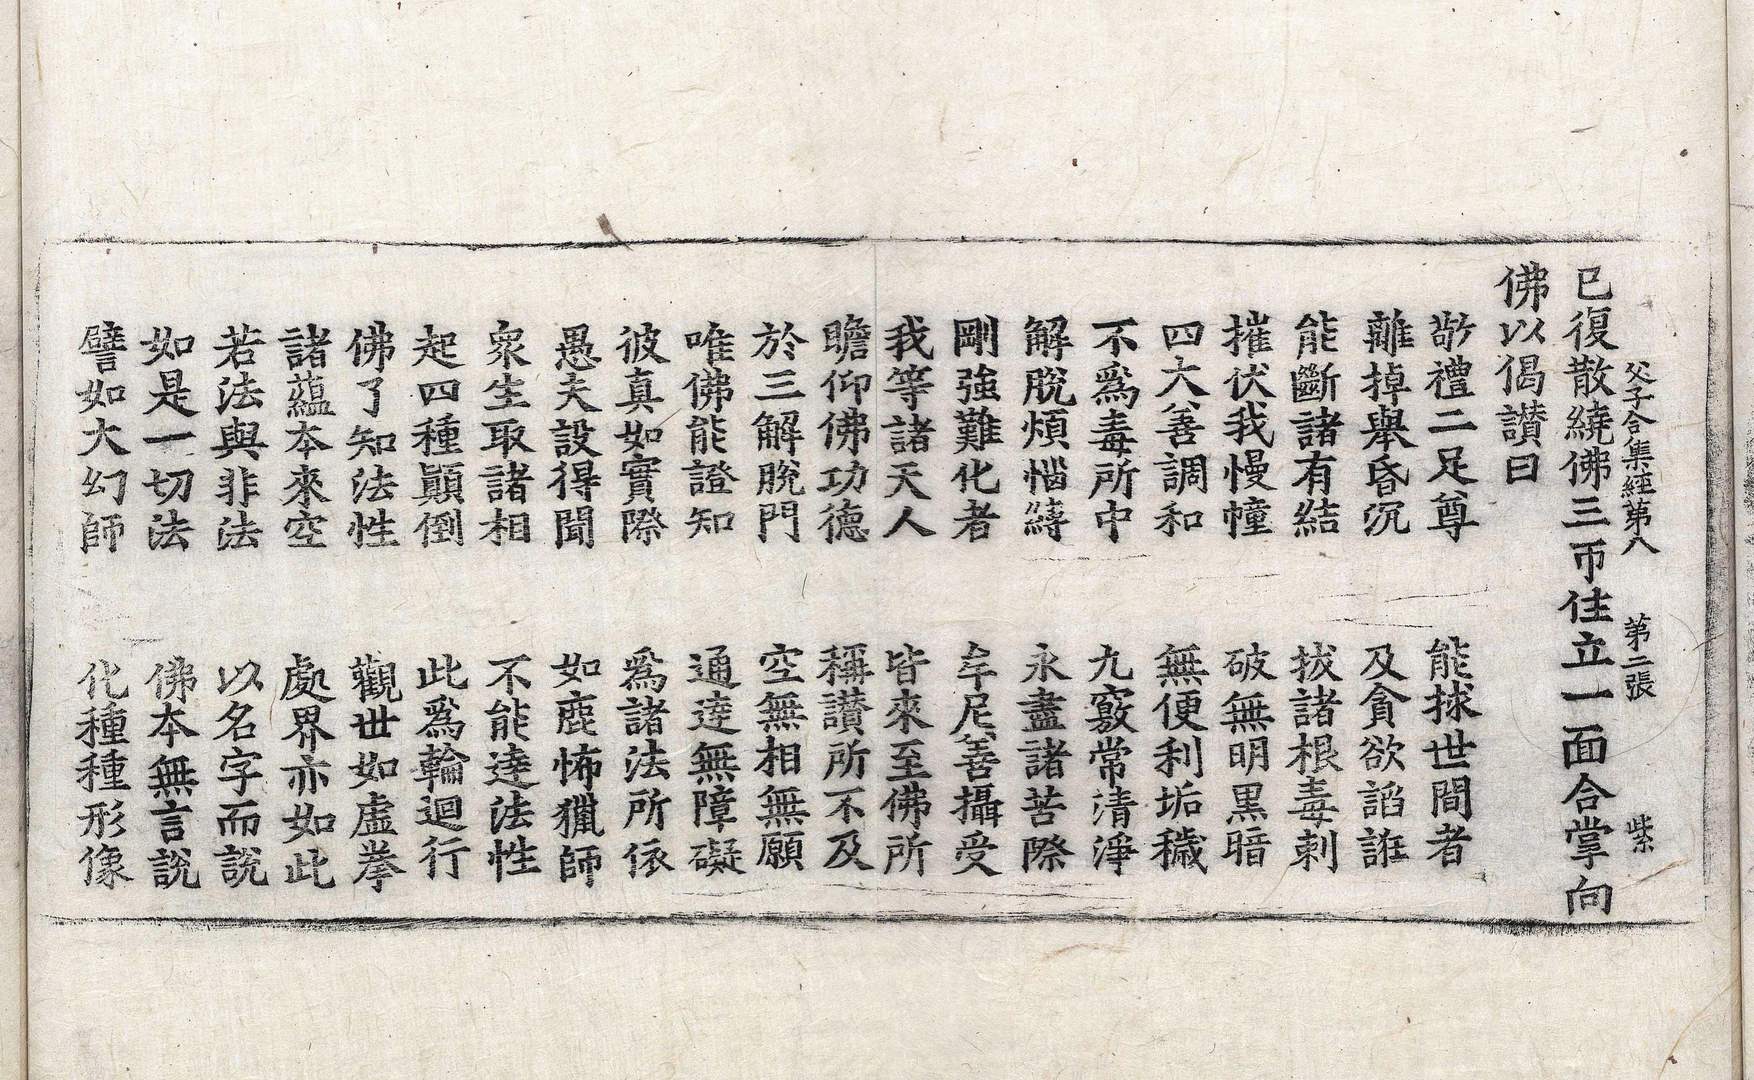 父子合集經第八 第二張 紫
已復散繞佛三帀住立一面合掌向
佛以偈讃曰
敬禮二足尊 能拯世間者
離掉舉昏沉 及貪欲諂誑
能斷諸有結 拔諸根毒刺
摧伏我慢幢 破無明黒暗
四大善調和 無便利垢穢
不爲毒所中 九竅常清淨
解脫煩惱縛 永盡諸苦際
剛強難化者 牟尼善攝受
我等諸天人 皆來至佛所
瞻仰佛功德 稱讃所不及
於三解脫門 空無相無願
唯佛能證知 通達無障礙
彼真如實際 爲諸法所依
愚夫設得聞 如鹿怖獵師
衆生取諸相 不能達法性
起四種顚倒 此爲輪迴行
佛了知法性 觀世如虛拳
諸蘊本來空 處界亦如此
若法與非法 以名字而說
如是一切法 佛本無言說
譬如大幻師 化種種形像